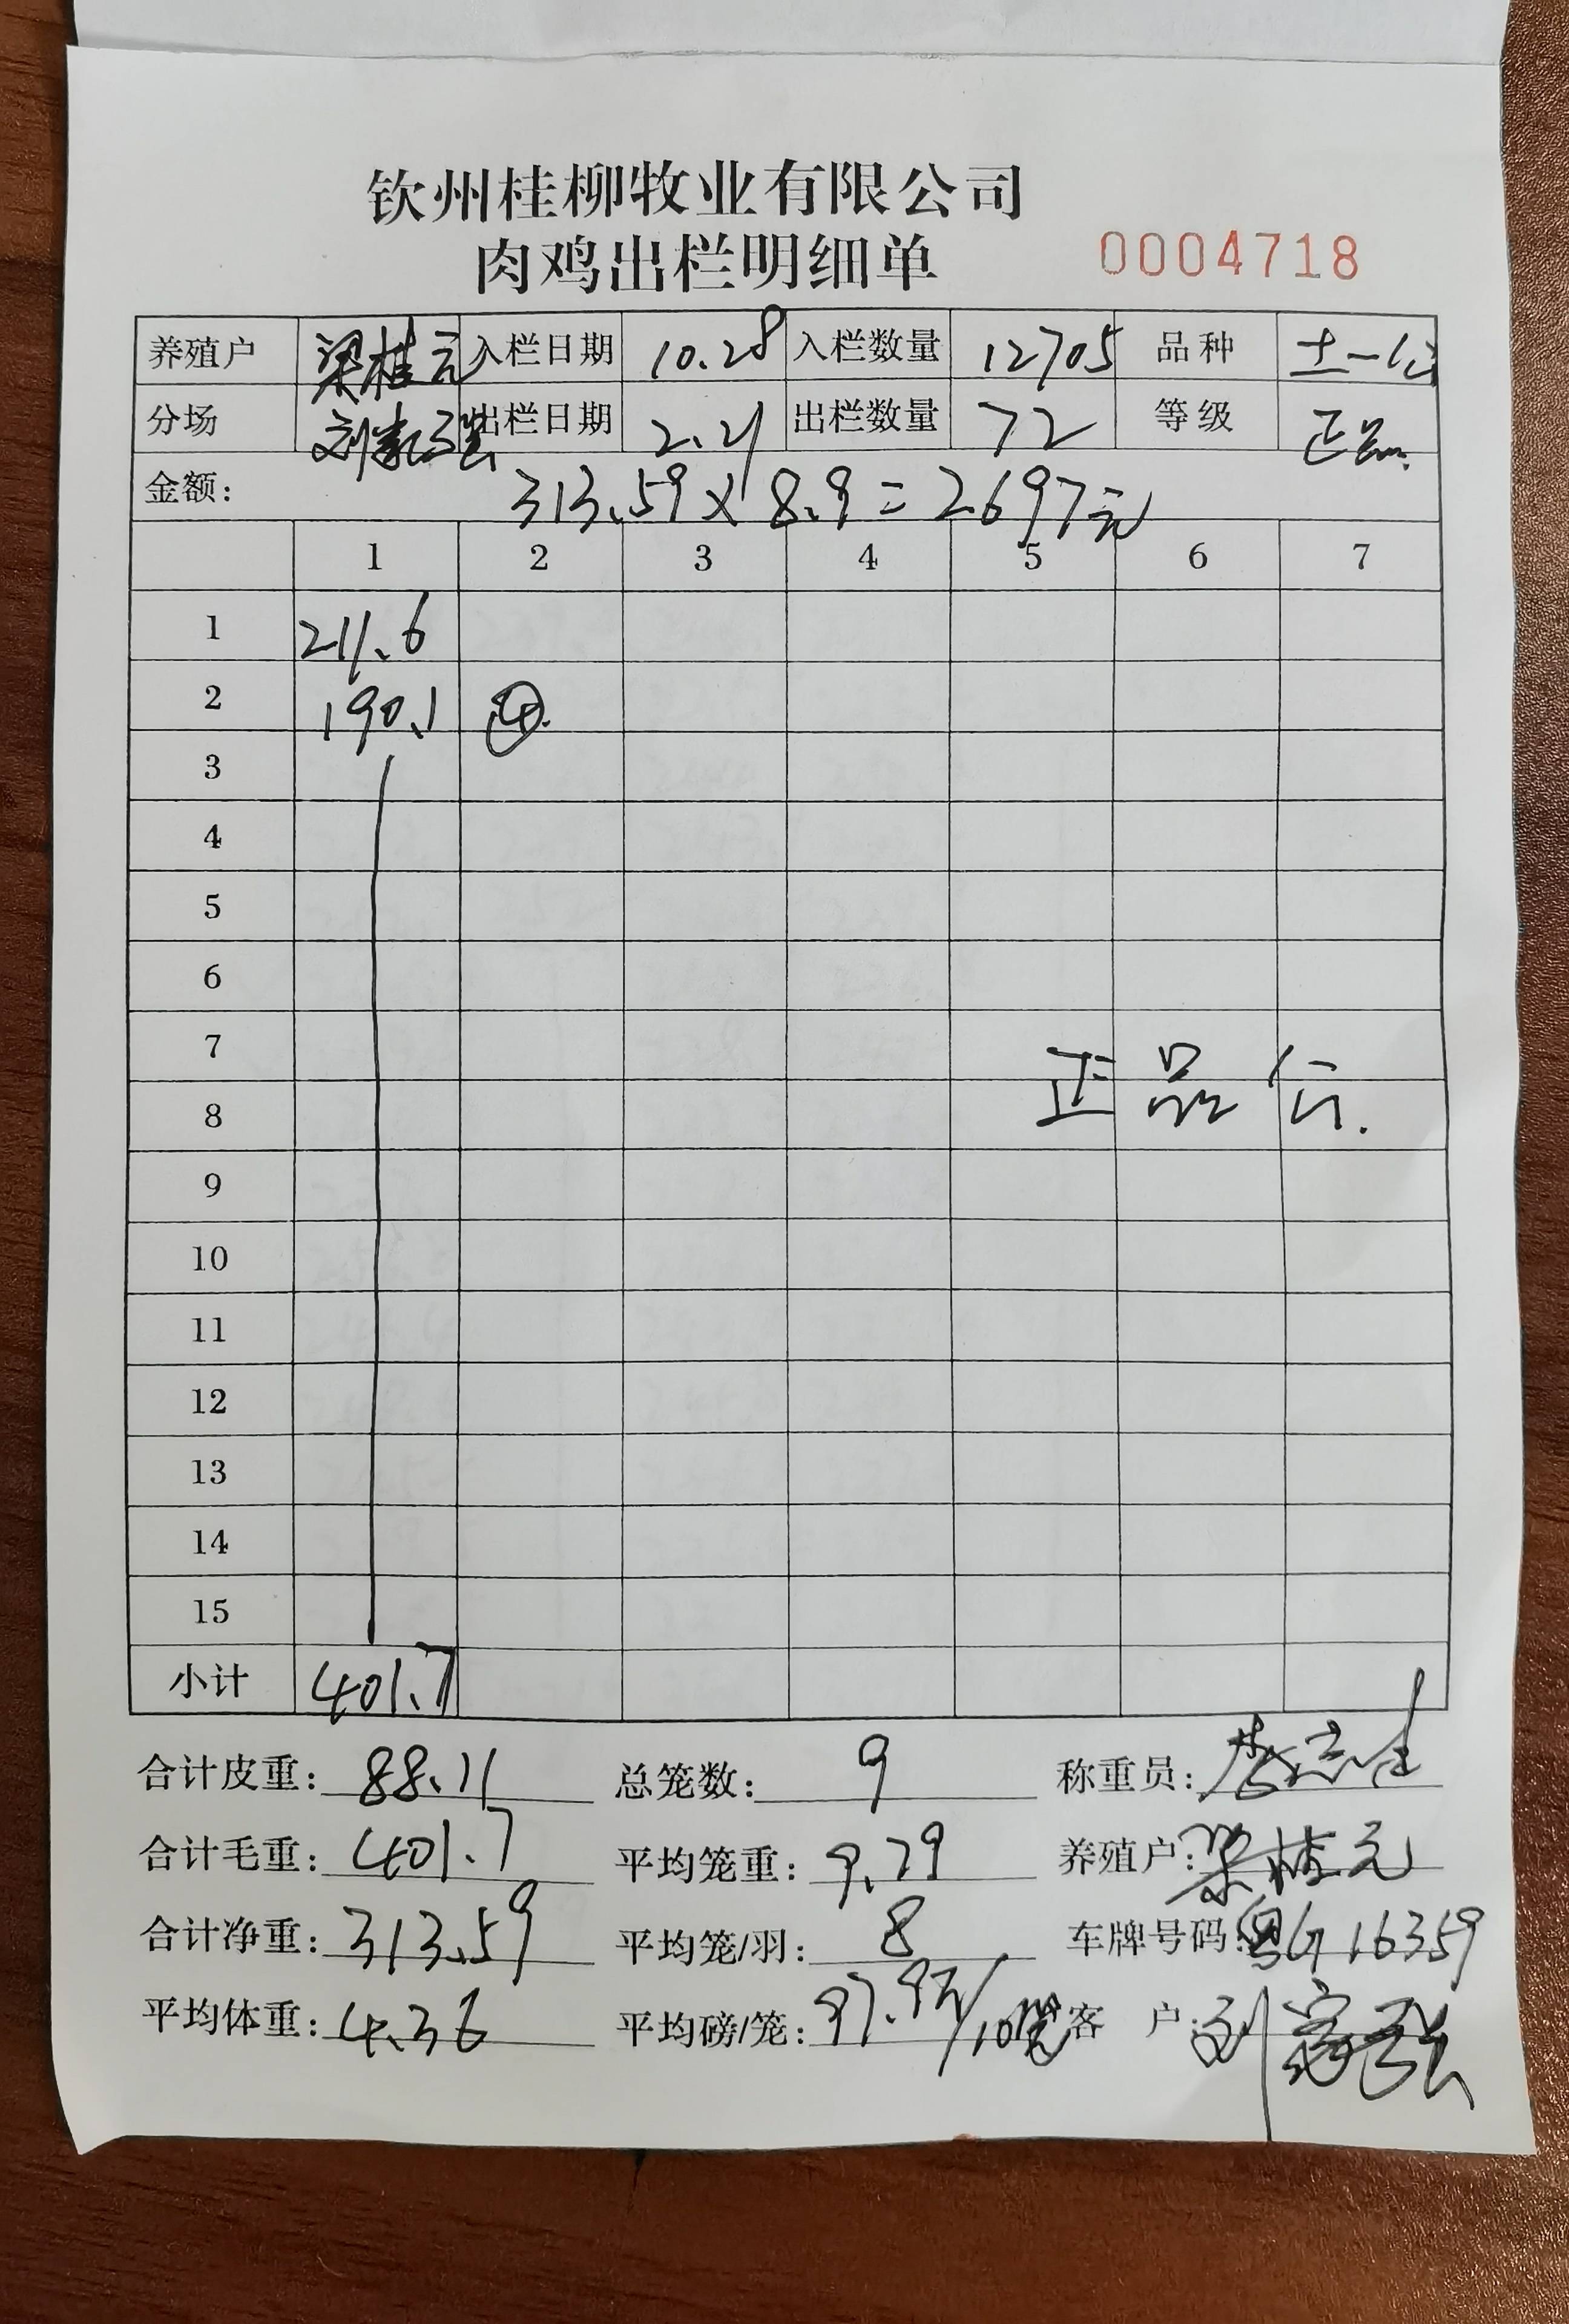 钦州桂柳牧业有限公司
肉鸡出栏明细单 0004718
养殖户 梁桂元 入栏日期 10.28 入栏数量 12705 品种 土一公
分场 刘家强 出栏日期 2.21 出栏数量 72 等级 正品.
金额: 313.59×8.9=2697元
1 2 3 4 5 6 7
1 211.6
2 190.1 ④.
3
4
5
6
7
8 正品公.
9
10
11
12
13
14
15
小计 401.7
合计皮重: 88.11 总笼数: 9 称重员:
合计毛重: 401.7 平均笼重: 9.79 养殖户: 梁桂元
合计净重: 313.59 平均笼/羽: 8 车牌号码: 粤G16359
平均体重: 4.36 平均磅/笼: 97.9斤/10笼 客户: 刘家强